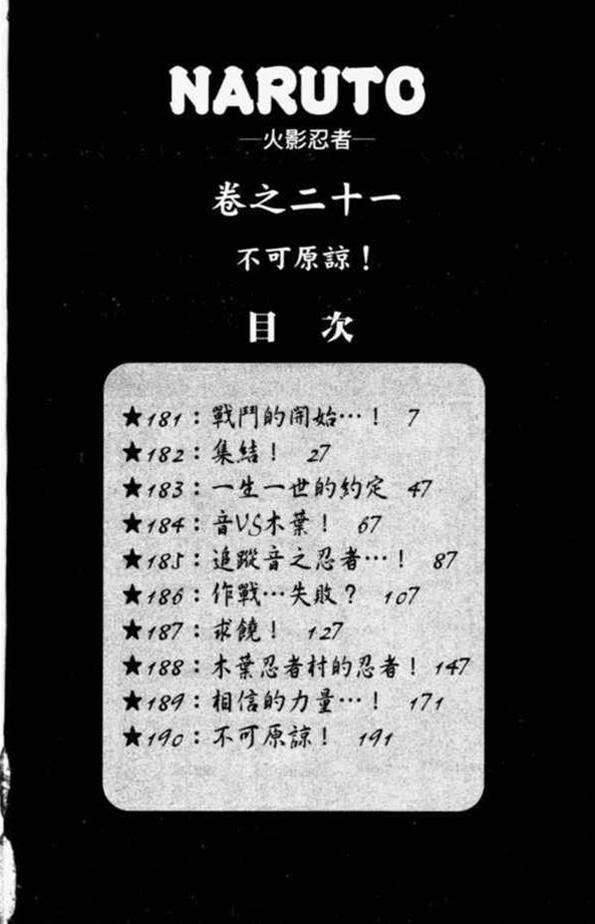 NARUTO
—火影忍者—
卷之二十一
不可原諒！
目 次
★181：戰鬥的開始…！ 7
★182：集結！ 27
★183：一生一世的約定 47
★184：音VS木葉！ 67
★185：追蹤音之忍者…！ 87
★186：作戰…失敗？ 107
★187：求饒！ 127
★188：木葉忍者村的忍者！ 147
★189：相信的力量…！ 171
★190：不可原諒！ 191